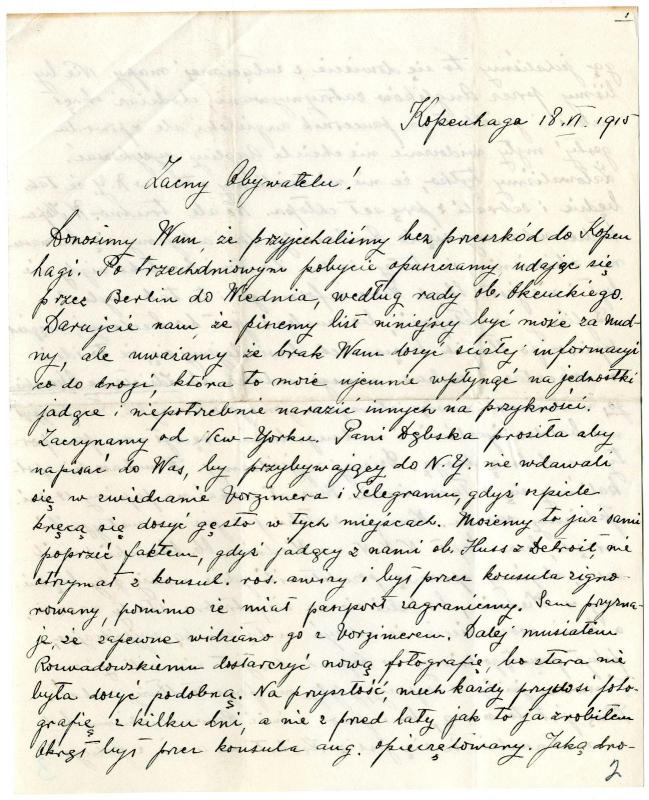 1
Kopenhaga 18.VI.1915
Zacny Obywatelu!
Donosimy Wam, że przyjechaliśmy bez przeszkód do Kopen
hagi. Po trzechdniowym pobycie opuszczamy, udając się
przez Berlin do Wiednia, według rady ob. Okęckiego.
Darujcie nam, że piszemy list niniejszy być może za nud-
ny, ale uważamy że brak Wam dosyć ścisłej informacyi
co do drogi, która to może ujemnie wpłynąć na jednostki
jadące i niepotrzebnie narazić innych na przykrości.
Zaczynamy od New-Yorku. Pani Dębska prosiła aby
napisać do Was, by przybywający do N.Y. nie wdawali
się w zwiedzanie Vorzimera i Telegramu, gdyż szpicle
kręcą się dosyć gęsto w tych miejscach. Możemy to już sami
poprzeć faktem, gdyż jadący z nami ob. Huss z Detroit, nie
otrzymał z konsul. ros. awizy i był przez konsula zigno-
rowany, pomimo że miał paszport zagraniczny. Sam przyzna-
je, że zapewne widziano go z Vorzimerem. Dalej musiałem
Rozwadowskiemu dostarczyć nową fotografię, bo stara nie
była dosyć podobną. Na przyszłość, niech każdy przynosi foto-
grafię z kilku dni, a nie z przed laty jak to ja zrobiłem
Okręt był przez konsula ang. opieczętowany. Jaką dro-
2